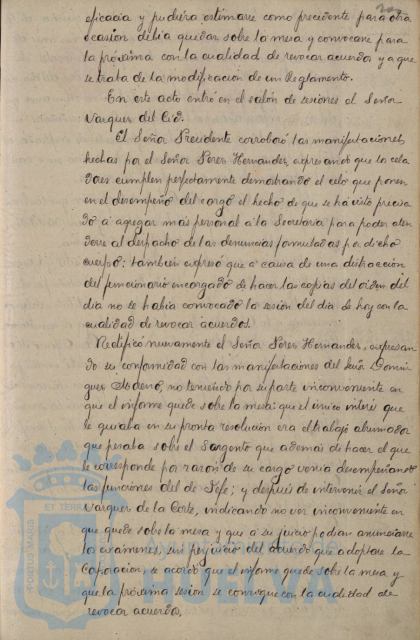 eficacia y pudiera estimarse como precedente para otra
ocasion debia quedar sobre la mesa y convocarse para
la próxima con la cualidad de revocar acuerdos ya que
se trata de la modificacion de un Reglamento.
En este acto entró en el salón de sesiones el Señor
Vazquez del Cid.
El Señor Presidente corroboró las manifestaciones
hechas por el Señor Perez Hernandez, expresando que los cela
dores cumplen perfectamente demostrando el celo que ponen
en el desempeño del cargo el hecho de que se há visto precisa
do á agregar más personal á la Secretaría para poder aten
derse al despacho de las denuncias formuladas por dicho
cuerpo: tambien expresó que á causa de una distraccion
del funcionario encargado de hacer las copias del orden del
dia no se había convocado la sesión del dia de hoy con la
cualidad de revocar acuerdos.
Rectificó nuevamente el Señor Perez Hernandez, expresan
do su conformidad con las manifestaciones del Señor Domin
guez, no teniendo por su parte inconveniente en
que el informe quede sobre la mesa: que el único interés que
le guiaba en su pronta resolución era el trabajo abrumador
que pesaba sobre el Sargento que además de hacer el que
le corresponde por razón de su cargo venía desempeñando
las funciones del de Jefe; y después de intervenir el Señor
Vazquez de la Corte, indicando no ver inconveniente en
que quede sobre la mesa y que á su juicio podian anunciarse
los exámenes, sin perjuicio del acuerdo que adoptase la
Corporacion se acordó que el informe quede sobre la mesa y
que la próxima sesión se convoque con la cualidad de
revocar acuerdos.
PORTUS MARIS
ET TERRAE
HUELVA